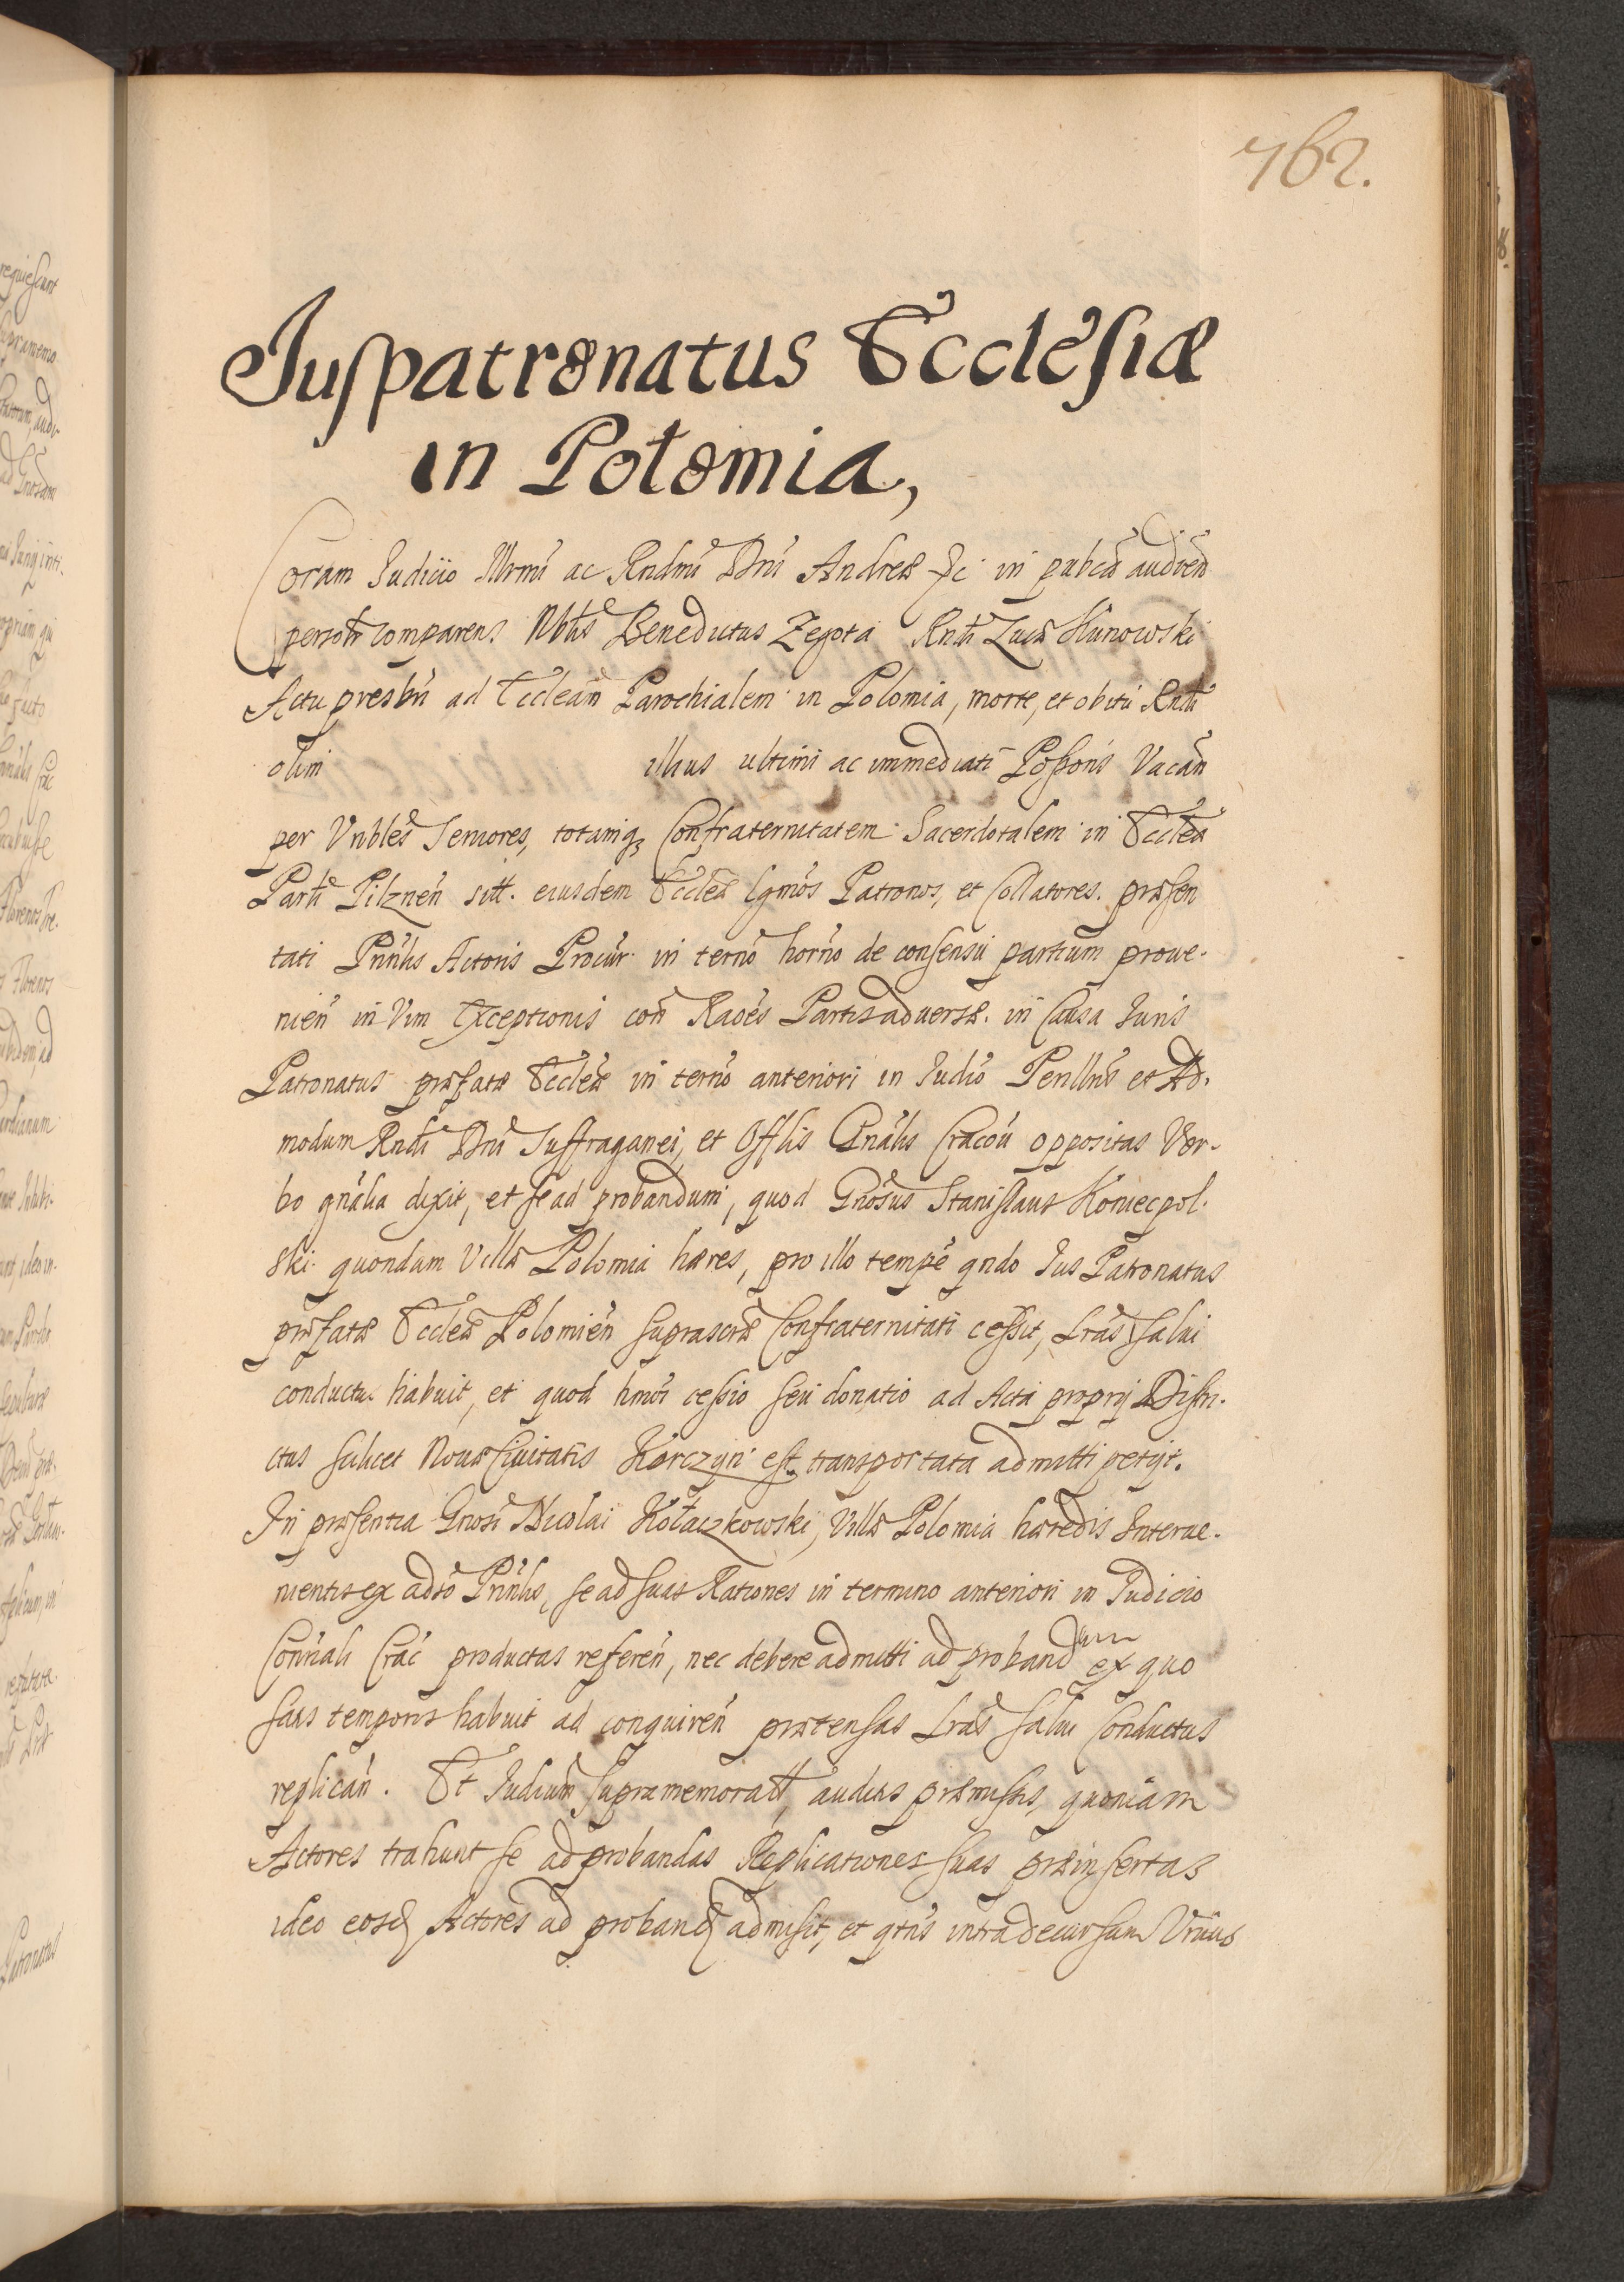 762.
Juspatronatus Ecclesiæ
in Połomia,
Coram Iudicio Illrmi ac Rndmi Dni Andreæ &c in pubca audien
personr comparens Nblis Benedictus Zegota Rndi Lucæ Kunowski
Actu presbri ad Eccleam Parochialem in Polomia, morte, et obitu Rndi
olim illius ultimi ac immediati Possoris Vacan
per Vnbles Seniores, totamq Confraternitatem Sacerdotalem in Ecclea
Parli Pilznen sitt. eiusdem Eccleæ lgmos Patronos, et Collatores. præsen
tati Prinlis Actoris Procur in terno horno de consensu partium prove-
nien in Vim Exceptionis con Raoes Partis adversæ. in Causa Iuris
Patronatus præfatæ Eccleæ in terno anteriori in Iudio Perillris et Ad-
modum Rndi Dni Suffraganei, et Offlis Gnalis Cracou oppositas Ver-
bo gnalia dixit, et se ad probandum, quod Gnosus Stanislaus Koniecpol-
ski quondam Villæ Polomia hæres, pro illo tempe qndo Ius Patronatus
præfatæ Eccleæ Polomien suprascrtæ Confraternitati cessit, Lras salui
conductus habuit, et quod hmoi cessio seu donatio ad Acta proprij Distri-
ctus scilicet Nouæ Ciuitatis Korczyn est transportata admitti petijt.
In præsentia Gnosi Nicolai Kołaczkowski, Villæ Polomia hæredis Interue-
nientis ex adso Prinlis, se ad suas Rationes in termino anteriori in Iudicio
Connali Crac productas referen, nec debere admitti ad proband um ex quo
satis temporis habuit ad conquiren prætensas Lras salui Conductus
replican. Et Iudium supramemoratt, auditis præmissis, quoniam
Actores trahunt se ad probandas Replicationes suas præinsertas
ideo eosd Actores ad proband admisit, et qtns intra decursum Vnius